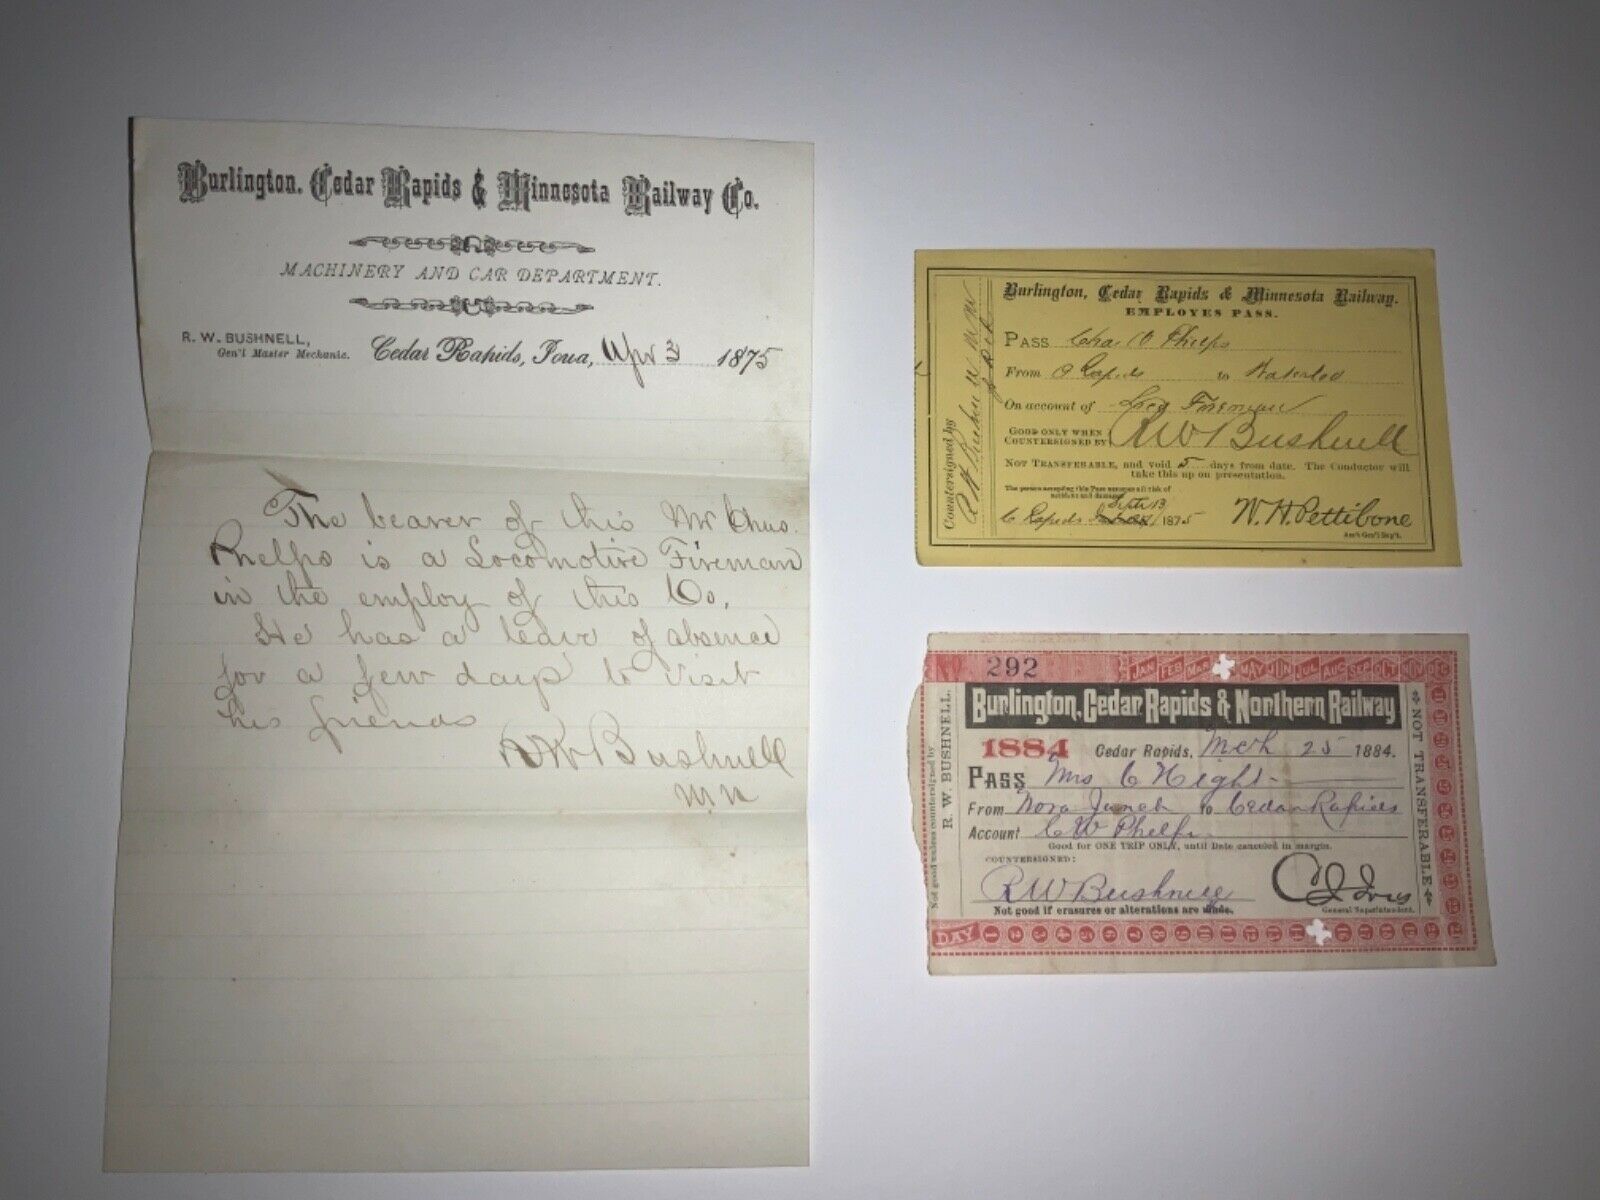 Burlington, Cedar Rapids & Minnesota Railway Co.
MACHINERY AND CAR DEPARTMENT.
R. W. BUSHNELL,
Gen'l Master Mechanic.
Cedar Rapids, Iowa, Apr 3 1875
The bearer of this Mr Chas.
Phelps is a Locomotive Fireman
in the employ of this Co.
He has a leave of absence
for a few days to visit
his friends
R W Bushnell
M M
Burlington, Cedar Rapids & Minnesota Railway.
EMPLOYES PASS.
PASS Chas Phelps
From C Rapids to Waterloo
On account of Loco Fireman
GOOD ONLY WHEN
COUNTERSIGNED BY R W Bushnell
NOT TRANSFERABLE, and void 5 days from date. The Conductor will
take this up on presentation.
The person accepting this Pass assumes all risk of
accident and damage
Sept 13
C Rapids 1875
W. H. Pettibone
Ass't Gen'l Sup't.
Countersigned by
No 292
JAN FEB MAR MAY JUN JUL AUG SEP OCT NOV DEC
Burlington, Cedar Rapids & Northern Railway
1884 Cedar Rapids, Mch 25 1884.
PASS Mrs C Hight
From Nora Junct to Cedar Rapids
Account C W Phelps
Good for ONE TRIP ONLY, until Date canceled in margin.
COUNTERSIGNED:
R W Bushnell
C J Ives
Not good if erasures or alterations are made.
General Superintendent.
DAY 1 2 3 4 5 6 7 8 9 10 11 12 13 14
Not good unless countersigned by
R. W. BUSHNELL.
NOT TRANSFERABLE